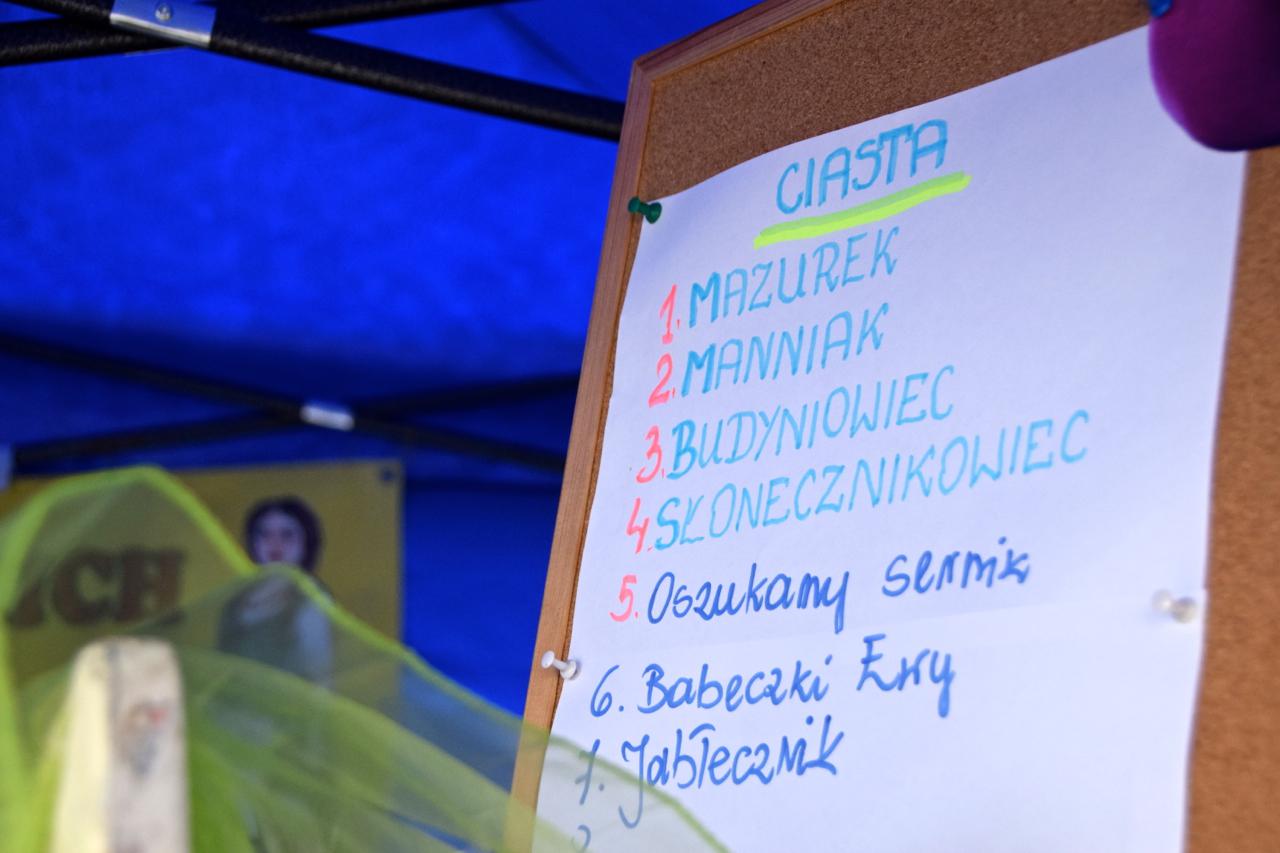 CIASTA
1. MAZUREK
2. MANNIAK
3. BUDYNIOWIEC
4. SŁONECZNIKOWIEC
5. Oszukany sernik
6. Babeczki Ewy
7. Jabłecznik
ICH